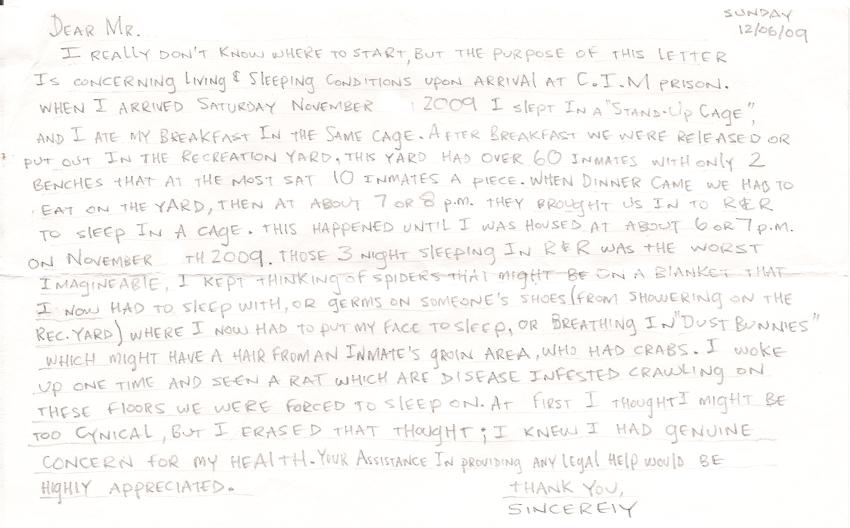 SUNDAY
12/06/09
DEAR MR.
I REALLY DON'T KNOW WHERE TO START, BUT THE PURPOSE OF THIS LETTER
IS CONCERNING LIVING & SLEEPING CONDITIONS UPON ARRIVAL AT C.I.M PRISON.
WHEN I ARRIVED SATURDAY NOVEMBER 2009 I SLEPT IN A "STAND-UP CAGE",
AND I ATE MY BREAKFAST IN THE SAME CAGE. AFTER BREAKFAST WE WERE RELEASED OR
PUT OUT IN THE RECREATION YARD. THIS YARD HAD OVER 60 INMATES WITH ONLY 2
BENCHES THAT AT THE MOST SAT 10 INMATES A PIECE. WHEN DINNER CAME WE HAD TO
EAT ON THE YARD, THEN AT ABOUT 7 OR 8 P.M. THEY BROUGHT US IN TO R&R
TO SLEEP IN A CAGE. THIS HAPPENED UNTIL I WAS HOUSED AT ABOUT 6 OR 7 P.M.
ON NOVEMBER TH 2009. THOSE 3 NIGHT SLEEPING IN R&R WAS THE WORST
IMAGINEABLE, I KEPT THINKING OF SPIDERS THAT MIGHT BE ON A BLANKET THAT
I NOW HAD TO SLEEP WITH, OR GERMS ON SOMEONE'S SHOES (FROM SHOWERING ON THE
REC. YARD) WHERE I NOW HAD TO PUT MY FACE TO SLEEP, OR BREATHING IN "DUST BUNNIES"
WHICH MIGHT HAVE A HAIR FROM AN INMATE'S GROIN AREA, WHO HAD CRABS. I WOKE
UP ONE TIME AND SEEN A RAT WHICH ARE DISEASE INFESTED CRAWLING ON
THESE FLOORS WE WERE FORCED TO SLEEP ON. AT FIRST I THOUGHT I MIGHT BE
TOO CYNICAL, BUT I ERASED THAT THOUGHT; I KNEW I HAD GENUINE
CONCERN FOR MY HEALTH. YOUR ASSISTANCE IN PROVIDING ANY LEGAL HELP WOULD BE
HIGHLY APPRECIATED.
THANK YOU,
SINCERELY